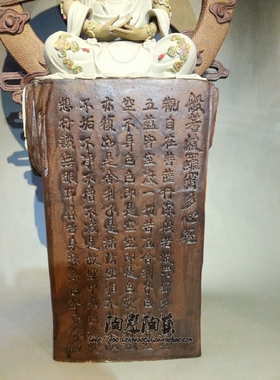 般若波羅蜜多心經
觀自在菩薩行深般若波羅蜜多
五蘊皆空度一切苦厄舍利子色
空不異色色即是空空即是色受
亦復如是舍利子是諸法空相不
不垢不淨不增不減是故空中無
想行識無眼耳鼻舌身意無色